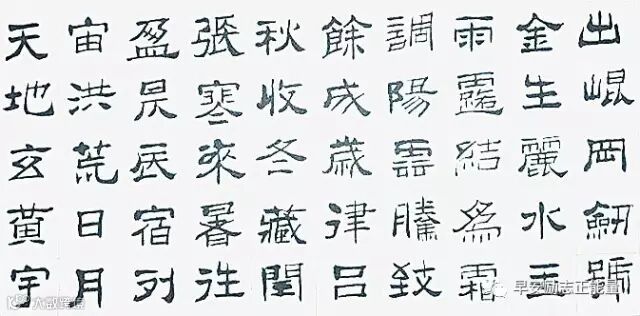 天地玄黃宇
宙洪荒日月
盈昃辰宿列
張寒來暑往
秋收冬藏閏
餘成歲律呂
調陽雲騰致
雨露結爲霜
金生麗水玉
出崐岡劍號
早安励志正能量